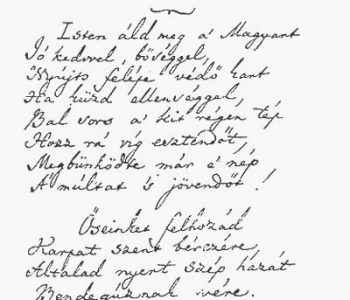 Isten áld meg a' Magyart
Jó kedvvel, bőséggel,
Nyújts feléje védő kart
Ha küzd ellenséggel,
Bal sors a' kit régen tép
Hozz rá víg esztendőt,
Megbünhödte már e' nép
A' múltat 's jövendőt!
Őseinket felhozád
Karpat szent bérczére,
Általad nyert szép hazát
Bendeguznak vére.